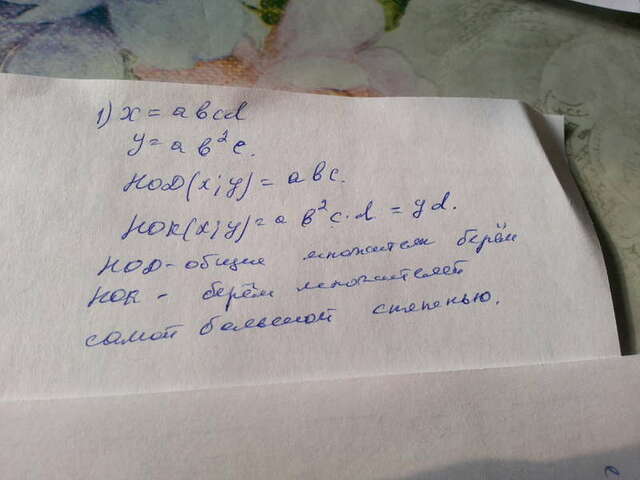 1) x = abcd
y = ab²c.
НОД(x;y) = abc.
НОК(x;y) = ab²c·d = yd.
НОД - общие множители берём
НОК - берём множителей
самой большой степенью.